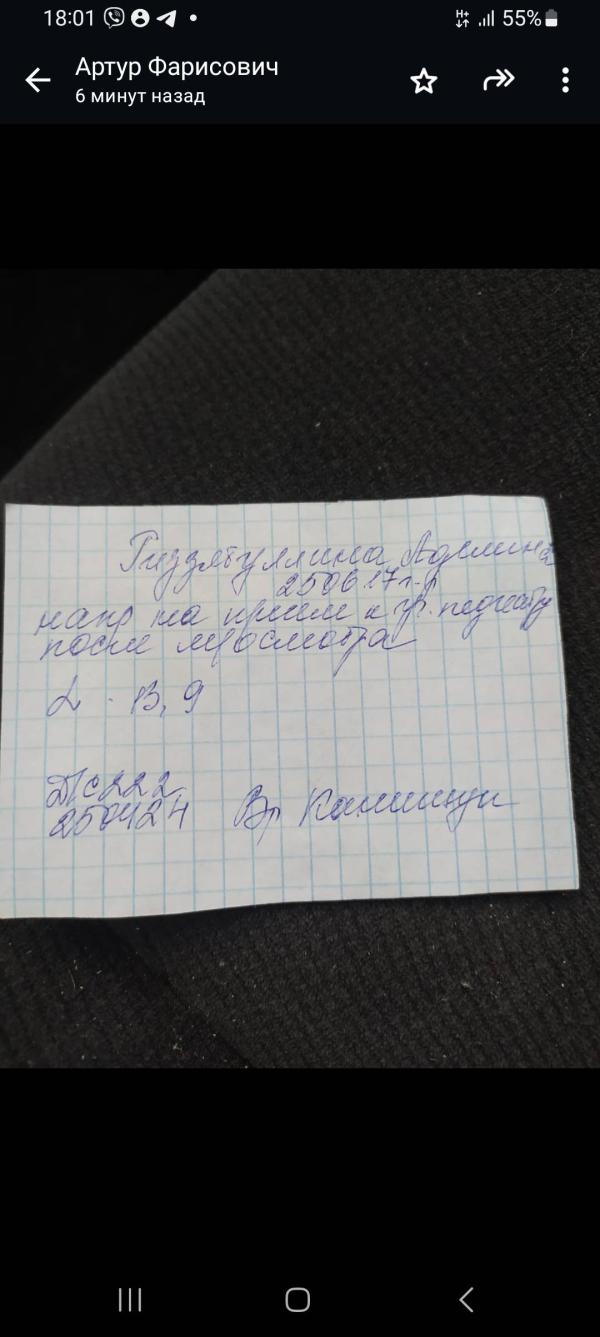 18:01 55%
Артур Фарисович
6 минут назад
Гиззятуллина Аделина
250617 г.р
напр на прием к уч. педиатру
после м/осмотра
L - 13,9
Д/с 222
250424 Вр